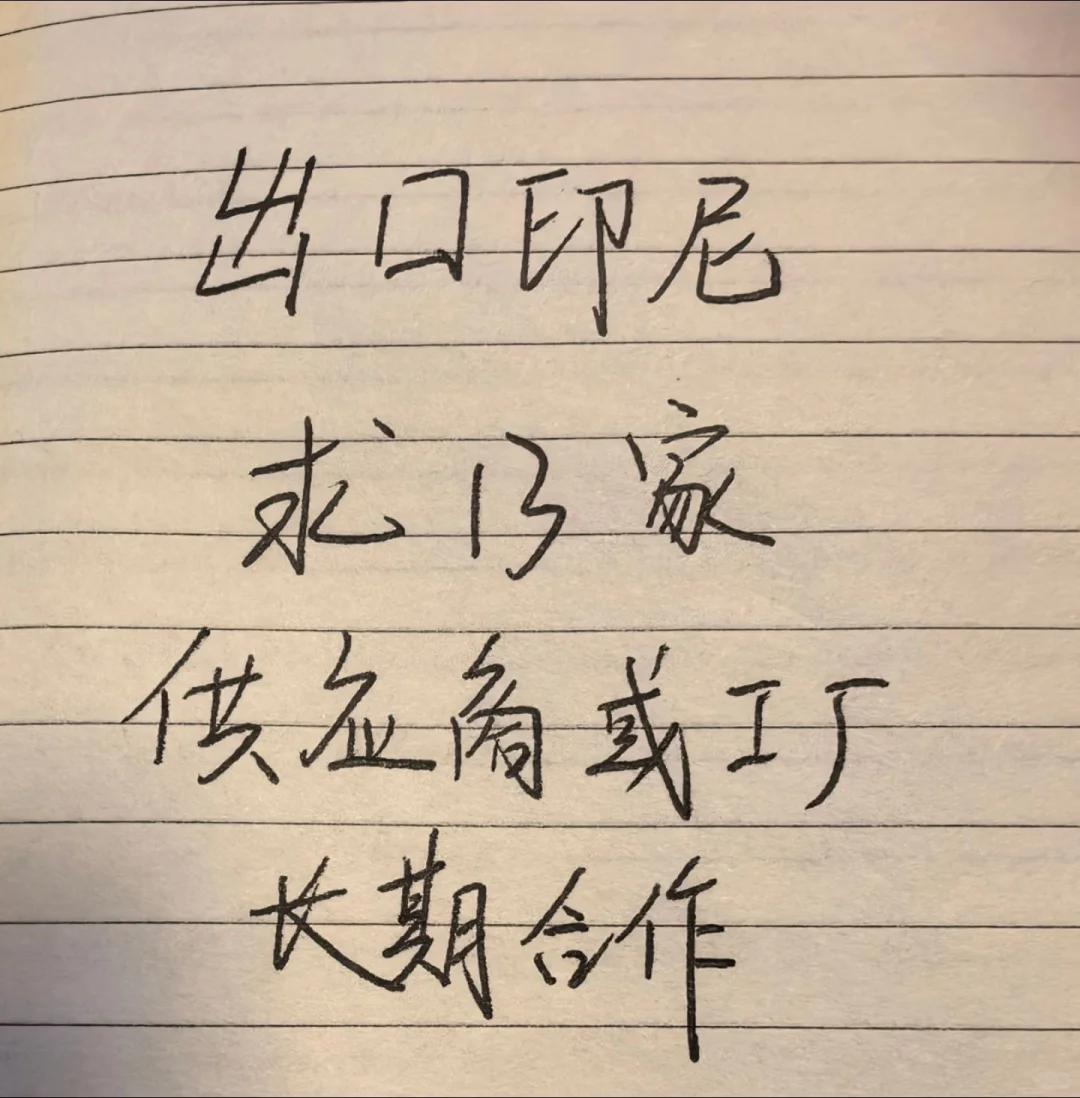 出口印尼
求13家
供应商或工厂
长期合作